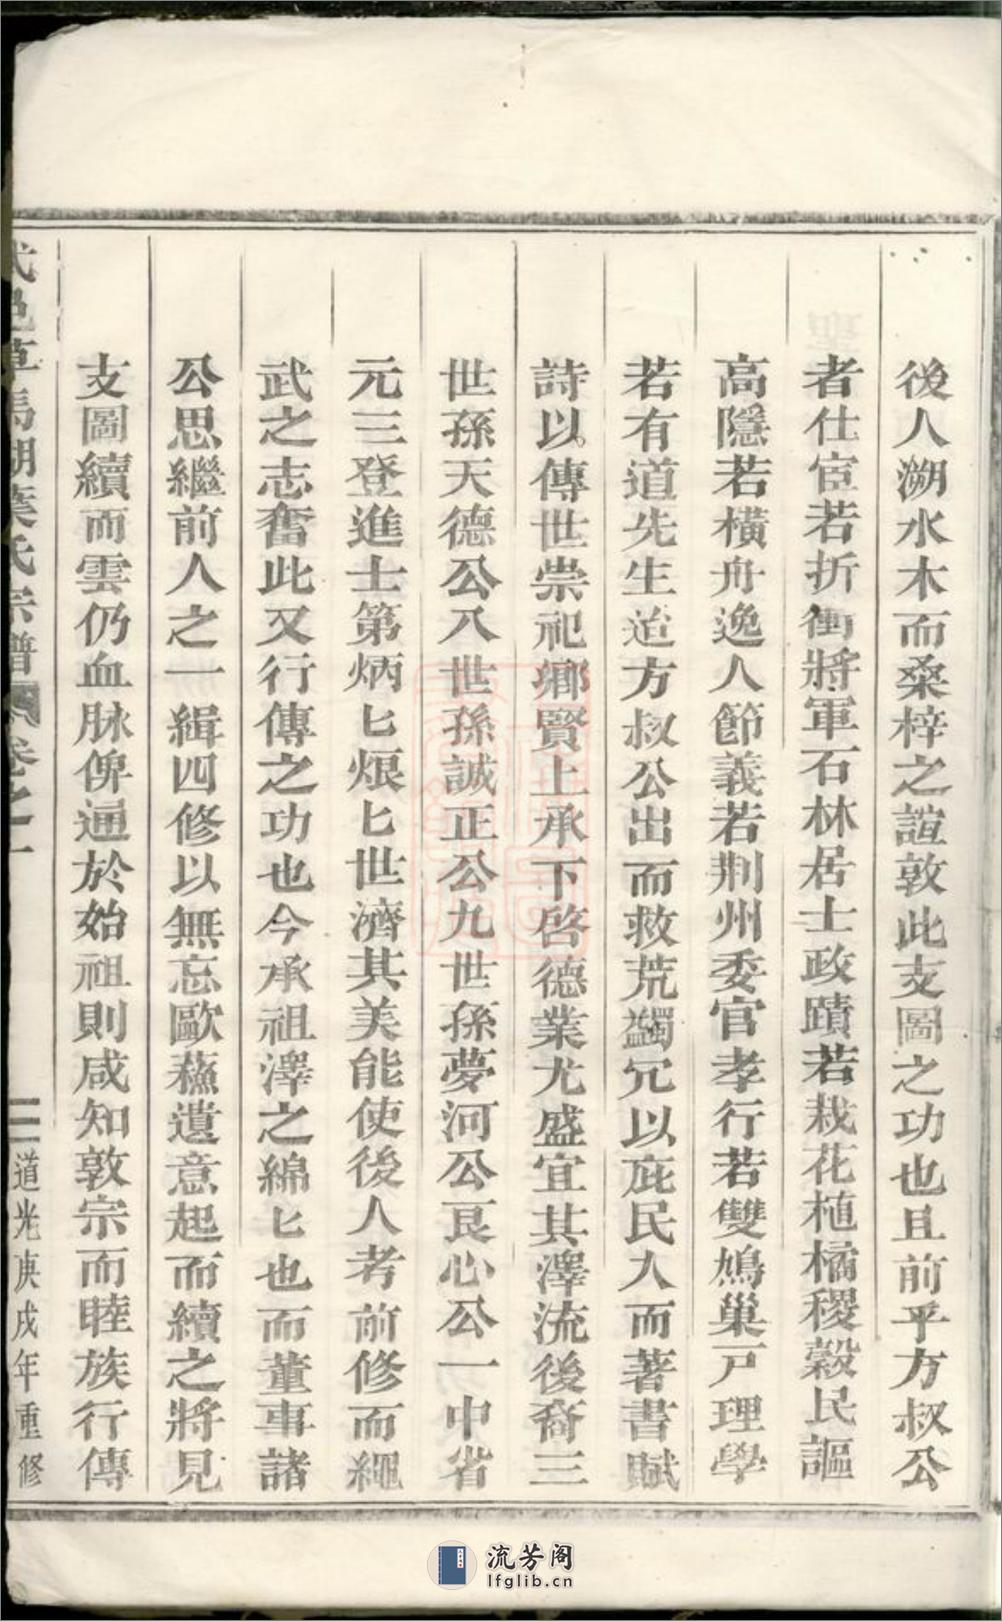 後人溯水木而桑梓之誼敦此支圖之功也且前乎方叔公
者仕宦若折衝將軍石林居士政蹟若栽花植橘稷穀民謳
高隱若橫舟逸人節義若荆州委官孝行若雙鳩巢戶理學
若有道先生迨方叔公出而救荒蠲冗以庇民人而著書賦
詩以傳世崇祀鄉賢上承下啓德業尤盛宜其澤流後裔三
世孫天德公八世孫誠正公九世孫夢河公艮心公一中省
元三登進士第炳匕烺匕世濟其美能使後人考前修而繩
武之志奮此又行傳之功也今承祖澤之綿匕也而董事諸
公思繼前人之一緝四修以無忘歐蘇遺意起而續之將見
支圖續而雲仍血脉俾通於始祖則咸知敦宗而睦族行傳
邑草馬湖葉氏宗譜 卷之一 二 道光庚戌年重修
流芳阁
lfglib.cn